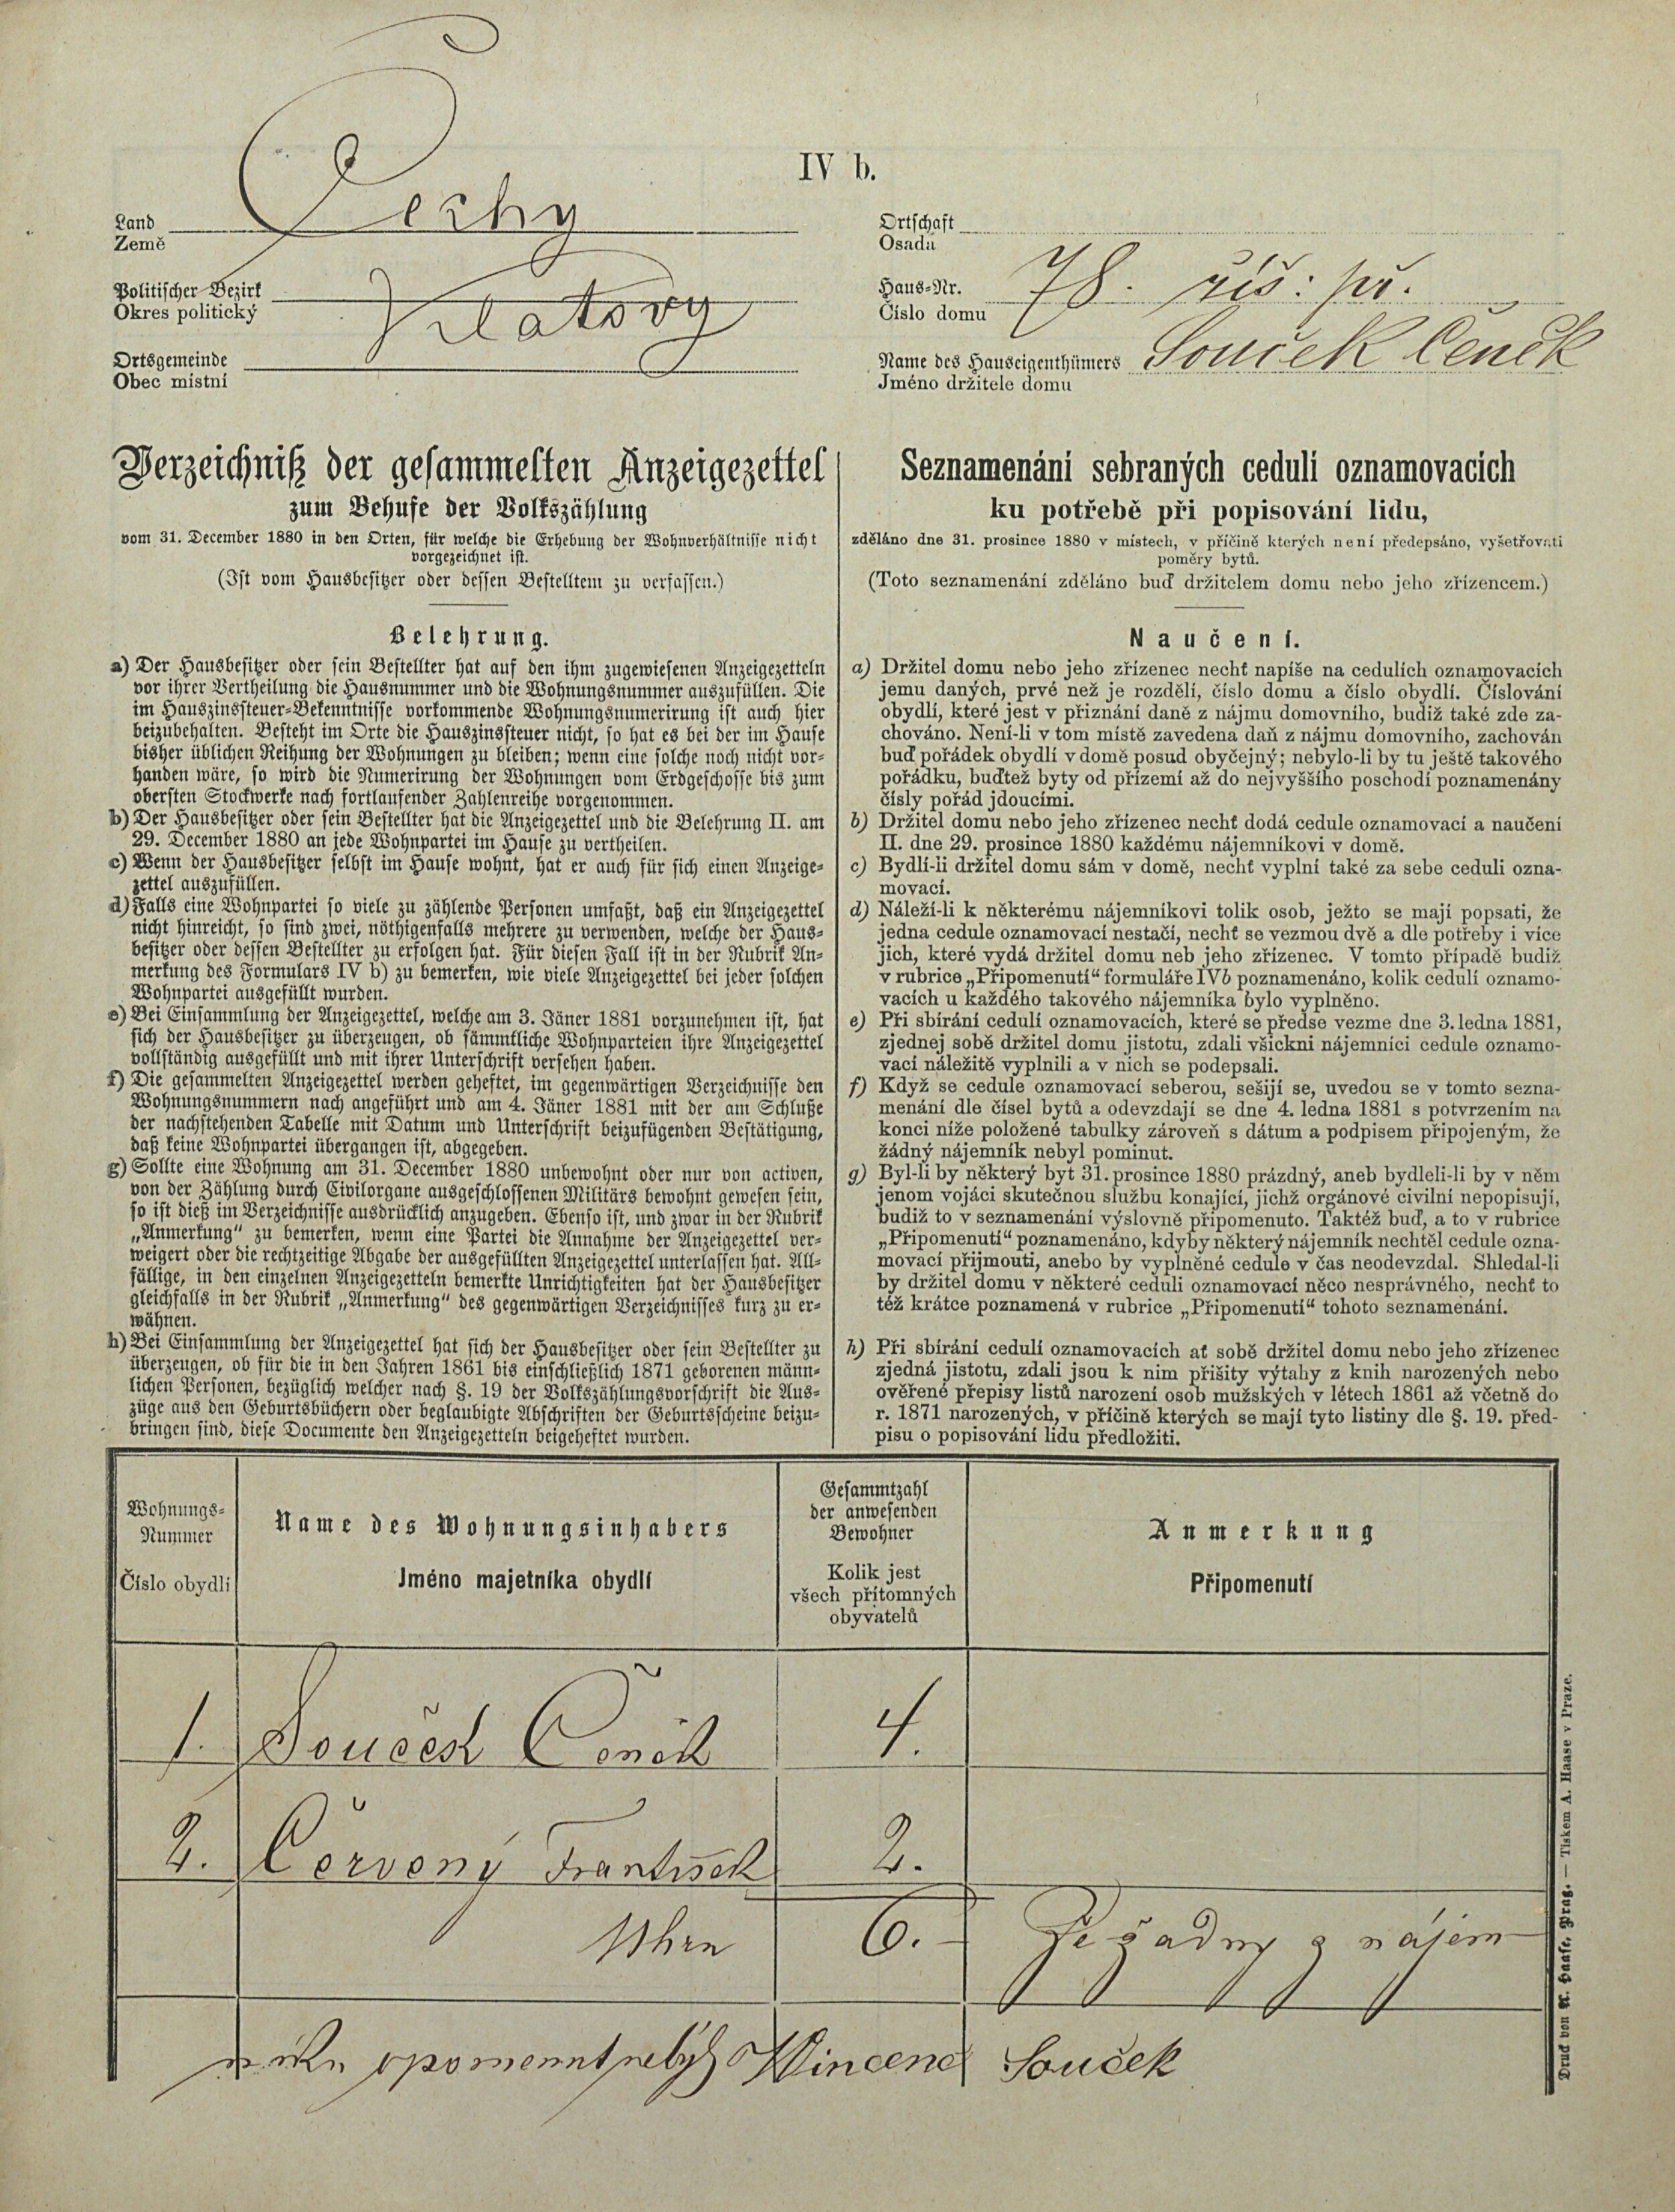 IV b.
Land
Země
Čechy
Politischer Bezirk
Okres politický
Klatovy
Ortsgemeinde
Obec místní
Ortschaft
Osada
Haus-Nr.
Číslo domu
78. říš: př.
Name des Hauseigenthümers
Jméno držitele domu
Souček Čeněk
Verzeichniß der gesammelten Anzeigezettel
zum Behufe der Volkszählung
vom 31. December 1880 in den Orten, für welche die Erhebung der Wohnverhältnisse nicht
vorgezeichnet ist.
(Ist vom Hausbesitzer oder dessen Bestelltem zu verfassen.)
Belehrung.
a) Der Hausbesitzer oder sein Bestellter hat auf den ihm zugewiesenen Anzeigezetteln
vor ihrer Vertheilung die Hausnummer und die Wohnungsnummer auszufüllen. Die
im Hauszinssteuer-Bekenntnisse vorkommende Wohnungsnumerirung ist auch hier
beizubehalten. Besteht im Orte die Hauszinssteuer nicht, so hat es bei der im Hause
bisher üblichen Reihung der Wohnungen zu bleiben; wenn eine solche noch nicht vor-
handen wäre, so wird die Numerirung der Wohnungen vom Erdgeschosse bis zum
obersten Stockwerke nach fortlaufender Zahlenreihe vorgenommen.
b) Der Hausbesitzer oder sein Bestellter hat die Anzeigezettel und die Belehrung II. am
29. December 1880 an jede Wohnpartei im Hause zu vertheilen.
c) Wenn der Hausbesitzer selbst im Hause wohnt, hat er auch für sich einen Anzeige-
zettel auszufüllen.
d) Falls eine Wohnpartei so viele zu zählende Personen umfaßt, daß ein Anzeigezettel
nicht hinreicht, so sind zwei, nöthigenfalls mehrere zu verwenden, welche der Haus-
besitzer oder dessen Bestellter zu erfolgen hat. Für diesen Fall ist in der Rubrik An-
merkung des Formulars IV b) zu bemerken, wie viele Anzeigezettel bei jeder solchen
Wohnpartei ausgefüllt wurden.
e) Bei Einsammlung der Anzeigezettel, welche am 3. Jäner 1881 vorzunehmen ist, hat
sich der Hausbesitzer zu überzeugen, ob sämmtliche Wohnparteien ihre Anzeigezettel
vollständig ausgefüllt und mit ihrer Unterschrift versehen haben.
f) Die gesammelten Anzeigezettel werden geheftet, im gegenwärtigen Verzeichnisse den
Wohnungsnummern nach angeführt und am 4. Jäner 1881 mit der am Schluße
der nachstehenden Tabelle mit Datum und Unterschrift beizufügenden Bestätigung,
daß keine Wohnpartei übergangen ist, abgegeben.
g) Sollte eine Wohnung am 31. December 1880 unbewohnt oder nur von activen,
von der Zählung durch Civilorgane ausgeschlossenen Militärs bewohnt gewesen sein,
so ist dieß im Verzeichnisse ausdrücklich anzugeben. Ebenso ist, und zwar in der Rubrik
„Anmerkung“ zu bemerken, wenn eine Partei die Annahme der Anzeigezettel ver-
weigert oder die rechtzeitige Abgabe der ausgefüllten Anzeigezettel unterlassen hat. All-
fällige, in den einzelnen Anzeigezetteln bemerkte Unrichtigkeiten hat der Hausbesitzer
gleichfalls in der Rubrik „Anmerkung“ des gegenwärtigen Verzeichnisses kurz zu er-
wähnen.
h) Bei Einsammlung der Anzeigezettel hat sich der Hausbesitzer oder sein Bestellter zu
überzeugen, ob für die in den Jahren 1861 bis einschließlich 1871 geborenen männ-
lichen Personen, bezüglich welcher nach §. 19 der Volkszählungsvorschrift die Aus-
züge aus den Geburtsbüchern oder beglaubigte Abschriften der Geburtsscheine beizu-
bringen sind, diese Documente den Anzeigezetteln beigeheftet wurden.
Seznamenání sebraných cedulí oznamovacích
ku potřebě při popisování lidu,
zděláno dne 31. prosince 1880 v místech, v příčině kterých není předepsáno, vyšetřovati
poměry bytů.
(Toto seznamenání zděláno buď držitelem domu nebo jeho zřízencem.)
Naučení.
a) Držitel domu nebo jeho zřízenec nechť napíše na cedulích oznamovacích
jemu daných, prvé než je rozdělí, číslo domu a číslo obydlí. Číslování
obydlí, které jest v přiznání daně z nájmu domovního, budiž také zde za-
chováno. Není-li v tom místě zavedena daň z nájmu domovního, zachován
buď pořádek obydlí v domě posud obyčejný; nebylo-li by tu ještě takového
pořádku, buďtež byty od přízemí až do nejvyššího poschodí poznamenány
čísly pořád jdoucími.
b) Držitel domu nebo jeho zřízenec nechť dodá cedule oznamovací a naučení
II. dne 29. prosince 1880 každému nájemníkovi v domě.
c) Bydlí-li držitel domu sám v domě, nechť vyplní také za sebe ceduli ozna-
movací.
d) Náleží-li k některému nájemníkovi tolik osob, ježto se mají popsati, že
jedna cedule oznamovací nestačí, nechť se vezmou dvě a dle potřeby i více
jich, které vydá držitel domu neb jeho zřízenec. V tomto případě budiž
v rubrice „Připomenutí“ formuláře IVb poznamenáno, kolik cedulí oznamo-
vacích u každého takového nájemníka bylo vyplněno.
e) Při sbírání cedulí oznamovacích, které se předse vezme dne 3. ledna 1881,
zjednej sobě držitel domu jistotu, zdali všickni nájemníci cedule oznamo-
vací náležitě vyplnili a v nich se podepsali.
f) Když se cedule oznamovací seberou, sešijí se, uvedou se v tomto sezna-
menání dle čísel bytů a odevzdají se dne 4. ledna 1881 s potvrzením na
konci níže položené tabulky zároveň s dátum a podpisem připojeným, že
žádný nájemník nebyl pominut.
g) Byl-li by některý byt 31. prosince 1880 prázdný, aneb bydleli-li by v něm
jenom vojáci skutečnou službu konající, jichž orgánové civilní nepopisují,
budiž to v seznamenání výslovně připomenuto. Taktéž buď, a to v rubrice
„Připomenutí“ poznamenáno, kdyby některý nájemník nechtěl cedule ozna-
movací přijmouti, anebo by vyplněné cedule v čas neodevzdal. Shledal-li
by držitel domu v některé ceduli oznamovací něco nesprávného, nechť to
též krátce poznamená v rubrice „Připomenutí“ tohoto seznamenání.
h) Při sbírání cedulí oznamovacích ať sobě držitel domu nebo jeho zřízenec
zjedná jistotu, zdali jsou k nim přišity výtahy z knih narozených nebo
ověřené přepisy listů narození osob mužských v létech 1861 až včetně do
r. 1871 narozených, v příčině kterých se mají tyto listiny dle §. 19. před-
pisu o popisování lidu předložiti.
Wohnungs-
Nummer
Číslo obydlí
Name des Wohnungsinhabers
Jméno majetníka obydlí
Gesammtzahl
der anwesenden
Bewohner
Kolik jest
všech přítomných
obyvatelů
Anmerkung
Připomenutí
1. Souček Čeněk 4.
2. Červený František 2.
Uhrn 6. Že žádný z nájem
níku opomenut nebyl Wincenc Souček
Druck von A. Haase, Prag. — Tiskem A. Haase v Praze.